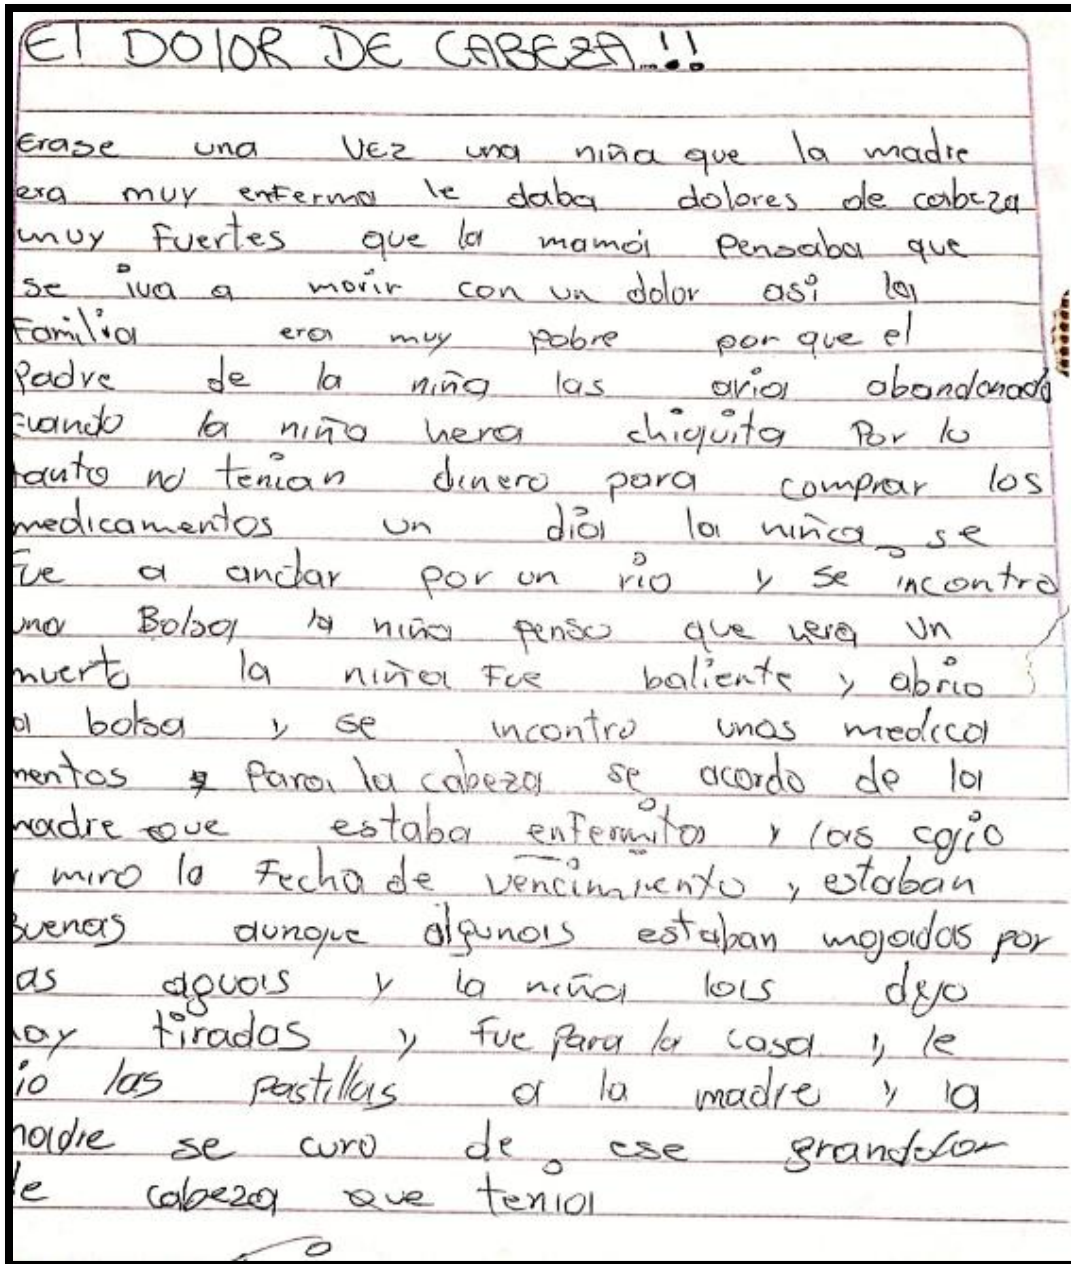 El DOlOR DE CABEZA...!!
Erase una VEz una niña que la madre
era muy enferma le daba dolores de cabeza
muy Fuertes que la mamá Pensaba que
se iva a morir con un dolor así la
Familia era muy pobre por que el
Padre de la niña las avia abandonado
cuando la niña hera chiquita Por lo
tanto no tenian dinero para comprar los
medicamentos un día la niña se
fue a andar por un río y se incontro
una Bolsa la niña penso que hera un
muerto la niña Fue baliente y abrio
a bolsa y se incontro unos medica
mentos Para la cabeza se acordo de la
madre que estaba enfermita y las cojio
y miro la Fecha de vencimiento y estaban
Buenas aunque algunas estaban mojadas por
as aguas y la niña las dejo
ay tiradas y fue Para la casa y le
io las pastillas a la madre y la
madre se curo de ese grandolor
e cabeza que tenia